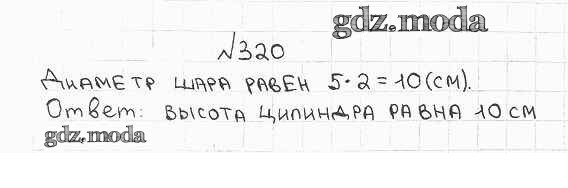 gdz.moda
№320
Диаметр шара равен 5·2=10(см).
Ответ: высота цилиндра равна 10 см
gdz.moda